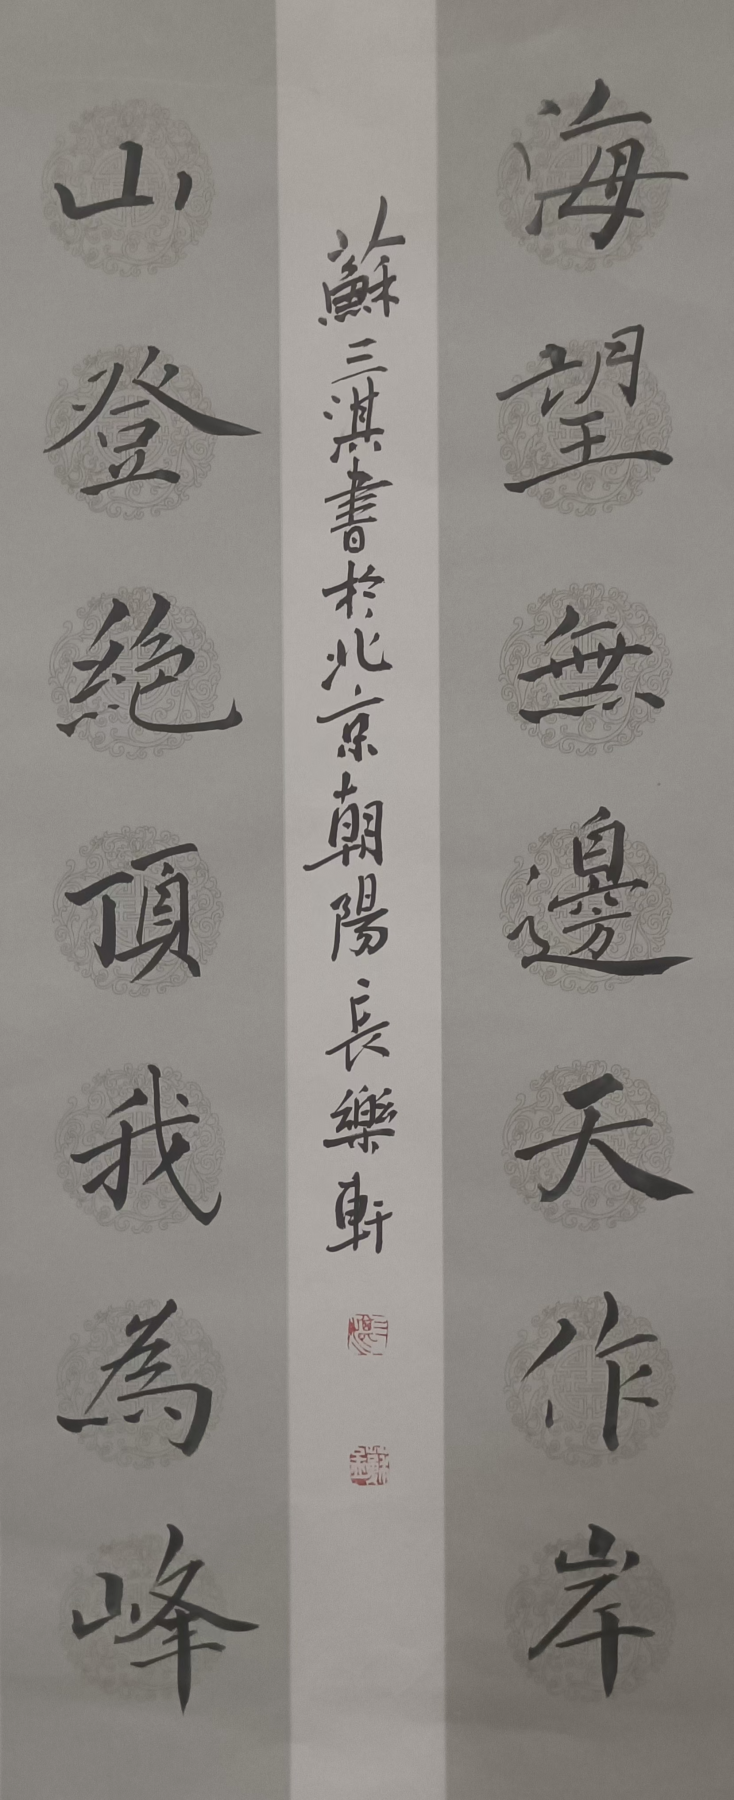 海望無邊天作岸
山登絕頂我為峰
蘇三淇書於北京朝陽長樂軒